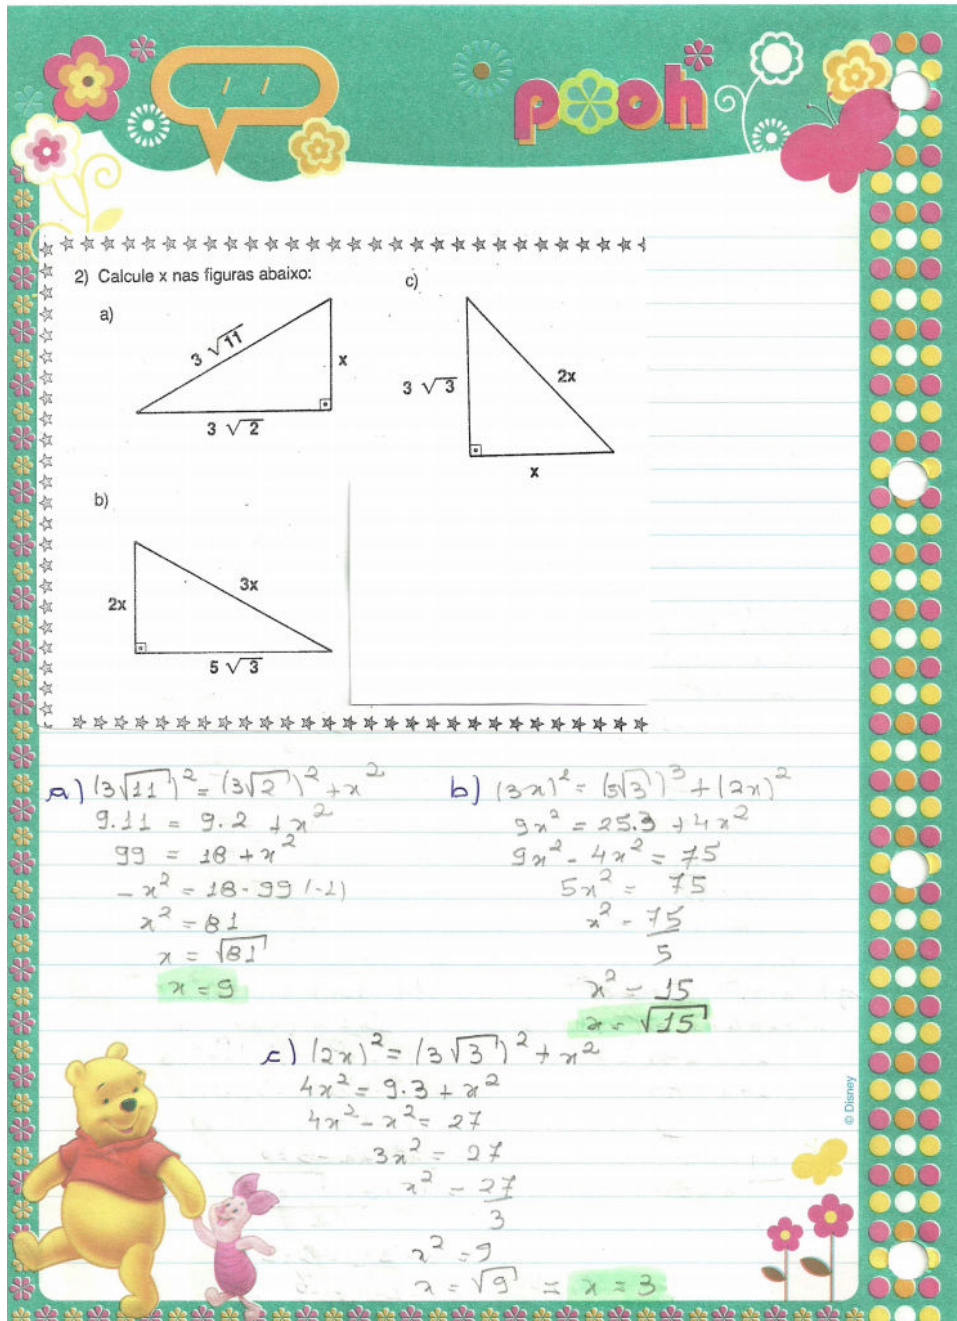 pooh
2) Calcule x nas figuras abaixo:
a)
3 √11
x
3 √2
c)
3 √3
2x
x
b)
2x
3x
5 √3
a) (3√11)² = (3√2)² + x²
9.11 = 9.2 + x²
99 = 18 + x²
- x² = 18 - 99 (-1)
x² = 81
x = √81
x = 9
b) (3x)² = (5√3)³ + (2x)²
9x² = 25.3 + 4x²
9x² - 4x² = 75
5x² = 75
x² = 75
5
x² = 15
x = √15
c) (2x)² = (3√3)² + x²
4x² = 9.3 + x²
4x² - x² = 27
3x² = 27
x² = 27
3
x² = 9
x = √9 = x = 3
© Disney